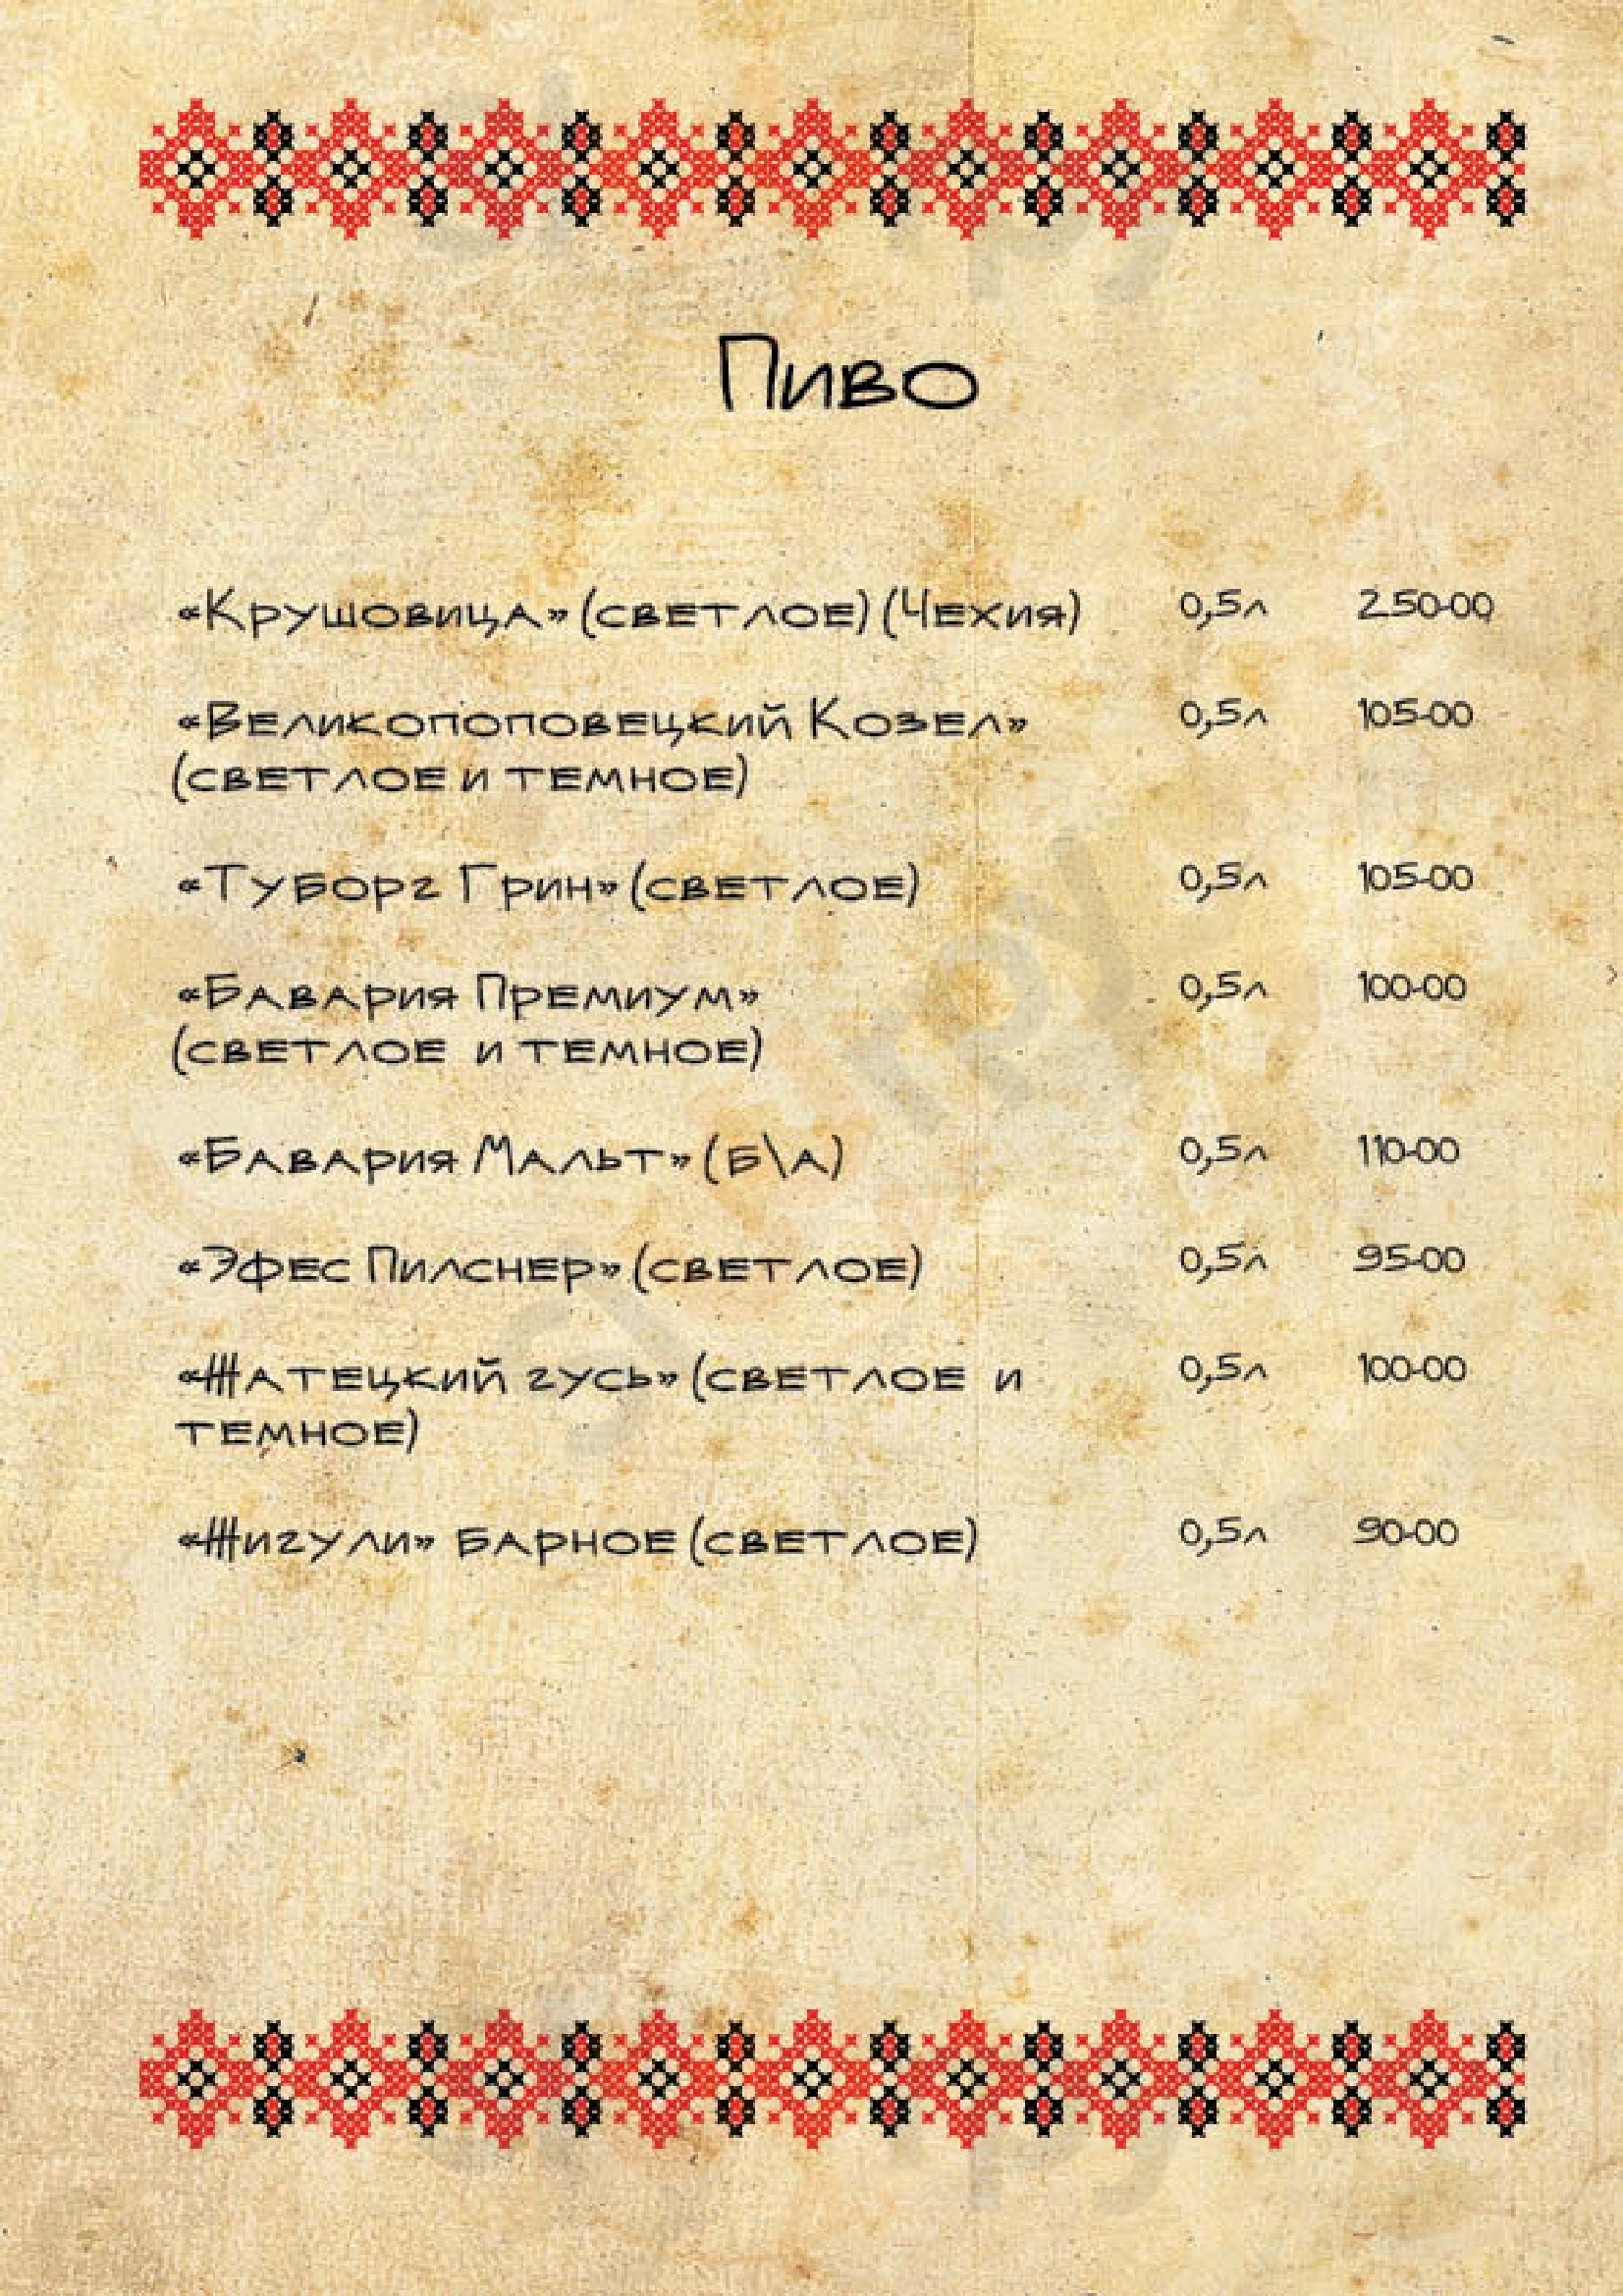 Пиво
«Крушовица» (светлое) (Чехия) 0,5л 250-00
«Великопоповецкий Козел» 0,5л 105-00
(светлое и темное)
«Туборг Грин» (светлое) 0,5л 105-00
«Бавария Премиум» 0,5л 100-00
(светлое и темное)
«Бавария Мальт» (б\а) 0,5л 110-00
«Эфес Пилснер» (светлое) 0,5л 95-00
«Жатецкий гусь» (светлое и 0,5л 100-00
темное)
«Жигули» барное (светлое) 0,5л 90-00